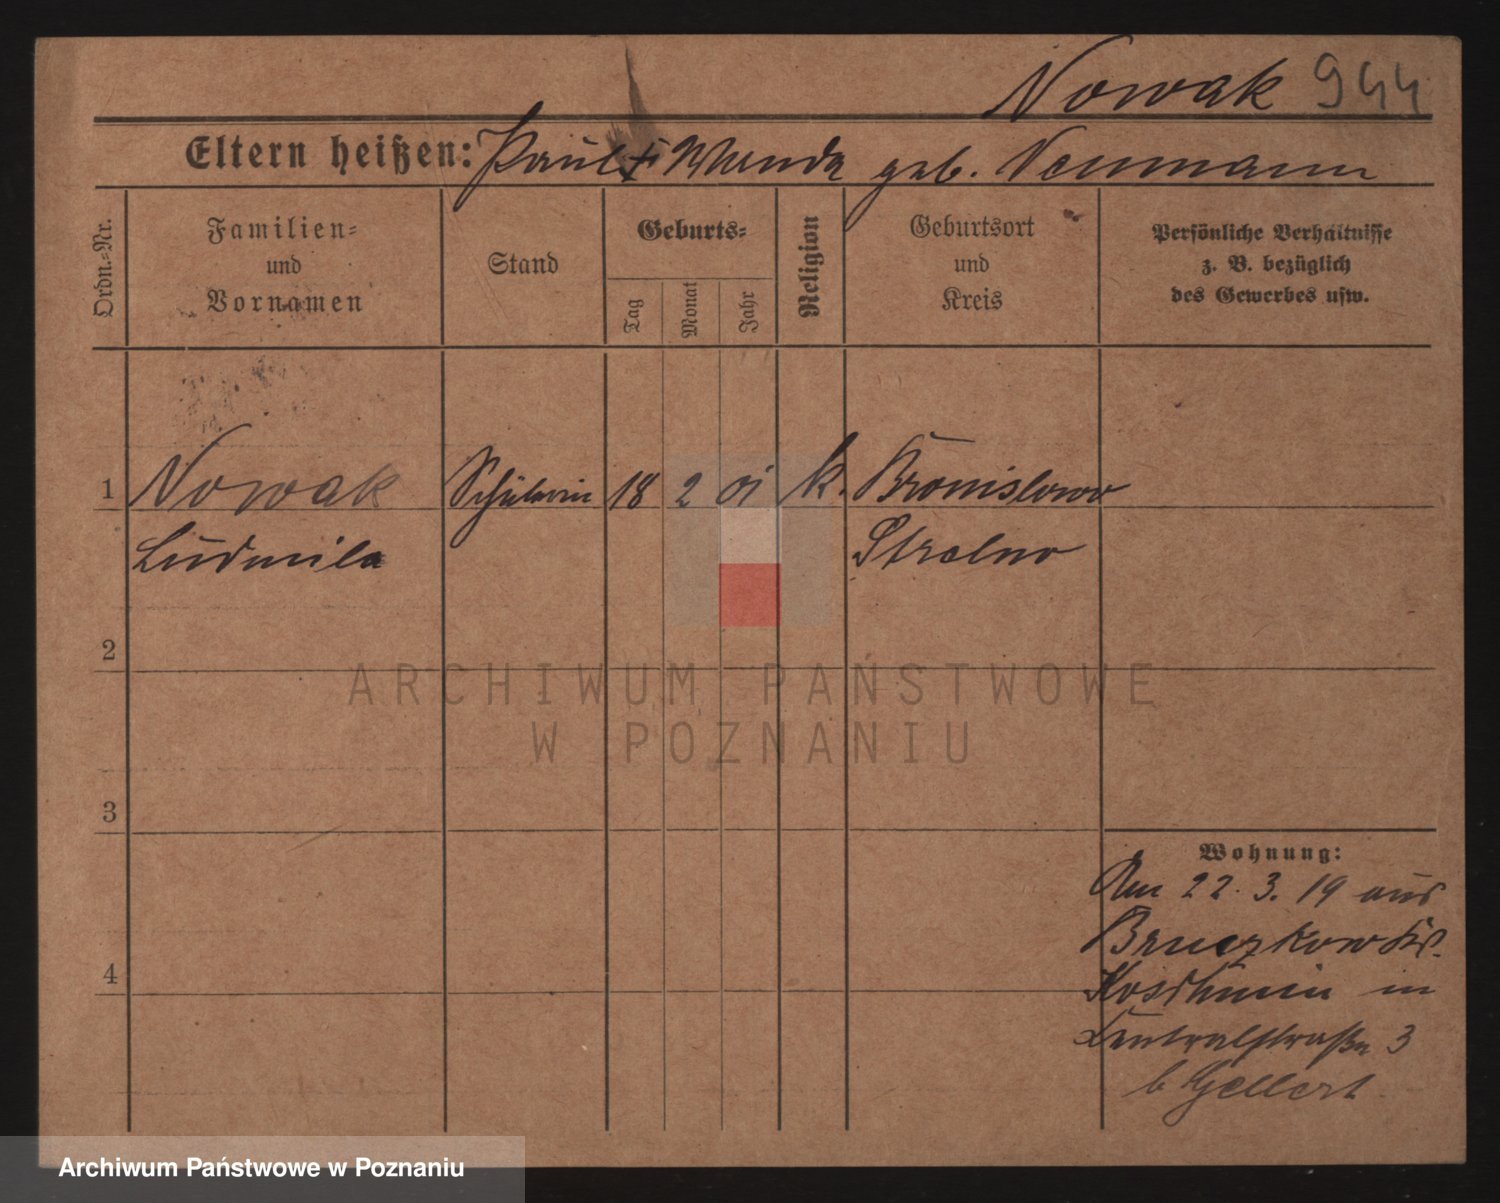 Nowak 944
Eltern heißen: Paul + Wanda geb. Neumann
Ordn.=Nr.
Familien=
und
Vornamen
Stand
Geburts=
Tag
Monat
Jahr
Religion
Geburtsort
und
Kreis
Persönliche Verhältnisse
z. B. bezüglich
des Gewerbes usw.
1 Nowak Schülerin 18 2 01 k. Bronislowo
Ludmila Strelno
2
3
4
Wohnung:
Am 22. 3. 19 aus
Bruczkow Kr.
Koschmin in
Centralstraße 3
b Gellert
ARCHIWUM PAŃSTWOWE
W POZNANIU
Archiwum Państwowe w Poznaniu